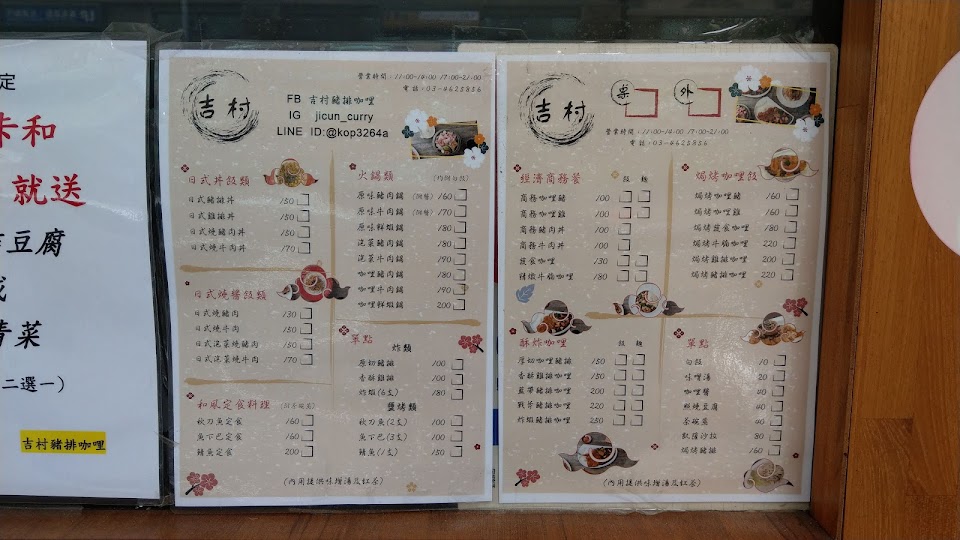 定
卡和
就送
豆腐
青菜
二選一)
吉村豬排咖哩
吉村
營業時間:11:00-14:00 17:00-21:00
電話:03-4625856
FB 吉村豬排咖哩
IG jicun_curry
LINE ID:@kop3264a
日式丼飯類
日式豬排丼 150
日式雞排丼 150
日式燒豬肉丼 150
日式燒牛肉丼 170
日式燒醬飯類
日式燒豬肉 130
日式燒牛肉 150
日式泡菜燒豬肉 150
日式泡菜燒牛肉 170
和風定食料理
秋刀魚定食 160
魚下巴定食 160
鯖魚定食 200
火鍋類 (均附白飯)
原味豬肉鍋 160
原味牛肉鍋 170
原味鮮蝦鍋 180
泡菜豬肉鍋 180
泡菜牛肉鍋 190
咖哩豬肉鍋 180
咖哩牛肉鍋 190
咖哩鮮蝦鍋 200
單點
炸類
厚切豬排 100
香酥雞排 100
炸蝦(6支) 180
鹽烤類
秋刀魚(2支) 100
魚下巴(3支) 100
鯖魚(1支) 150
(內用提供味增湯及紅茶)
吉村
桌
外
營業時間:11:00-14:00 17:00-21:00
電話:03-4625856
經濟商務餐 飯 麵
商務咖哩豬 100
商務咖哩雞 100
商務豬肉丼 100
商務牛肉丼 100
蔬食咖哩 130
精燉牛腩咖哩 180
酥炸咖哩 飯 麵
厚切咖哩豬排 150
香酥咖哩雞排 150
藍帶豬排咖哩 200
戰斧豬排咖哩 220
炸蝦豬排咖哩 250
焗烤咖哩飯
焗烤咖哩豬 160
焗烤咖哩雞 160
焗烤蔬食咖哩 180
焗烤牛腩咖哩 220
焗烤雞排咖哩 220
焗烤豬排咖哩 220
單點
白飯 10
味噌湯 20
咖哩醬 40
照燒豆腐 40
茶碗蒸 40
凱薩沙拉 80
焗烤豬排 160
(內用提供味增湯及紅茶)